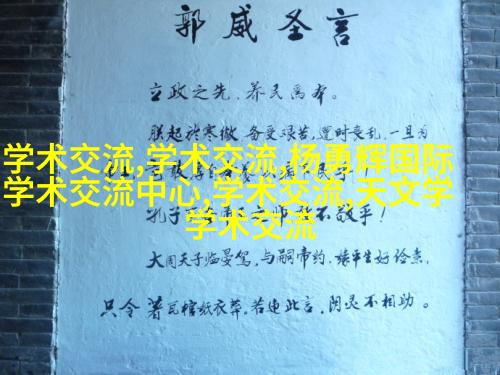 郭威圣言
立政之先,养民为本。
朕起於寒微,备受艰苦,遭时丧乱,一旦为
学术交流,学术交流,杨勇辉国际
学术交流中心,学术交流,天文学
学术交流
孔子 敢不敬乎!
大周天子临晏驾,与嗣帝约,缘平生好俭素,
只令著瓦棺纸衣葬。若违此言,阴灵不相助。